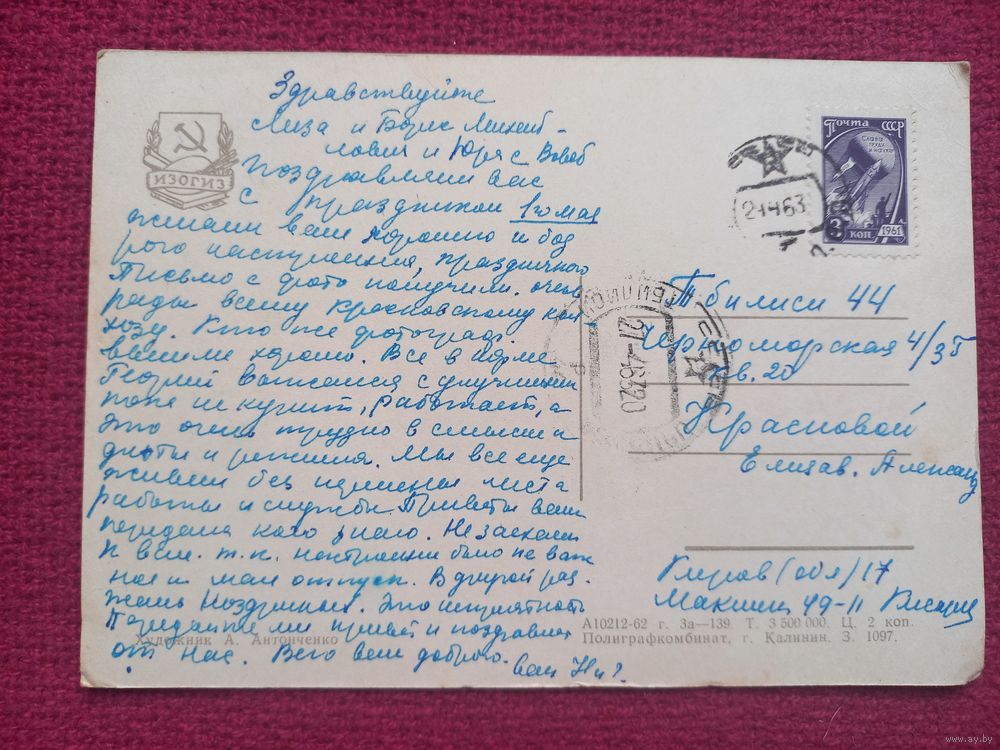 Здравствуйте
Лиза и Борис Михай-
лович и Юра с Вовоб
Поздравляем вас
с праздником 1го мая
желаем вам хорошего и бод
рого настроения, праздничного
Письмо с фото получили. очень
рады всему Красновскому кол
хозу. Кто же фотограф.
вышли хорошо. Все в норме
Георгий
пока не курит, работает, а
это очень трудно в смысле
диеты и режима. Мы все еще
живем без перемены места
работы и службы. Приветы ваши
передала кого знаю. Не заехали
к вам. т.к. настроение было не важ
ное и мал отпуск. В другой раз.
Жаль Это неприятность
Передайте им привет и поздравл
от нас. Всего вам доброго.
ваш
ИЗОГИЗ
Художник А. Антонченко
Почта СССР
Слава
труду
и науке
3 коп 1961
63
ТБИЛИСИ
27-463 20
Тбилиси 44
Черноморская 4/3б
кв. 20
Красновой
Елизав. Александ
Киров (обл) 17
49-11
А10212-62 г. За—139. Т. 3 500 000. Ц. 2 коп.
Полиграфкомбинат, г. Калинин. З. 1097.
www.ay.by